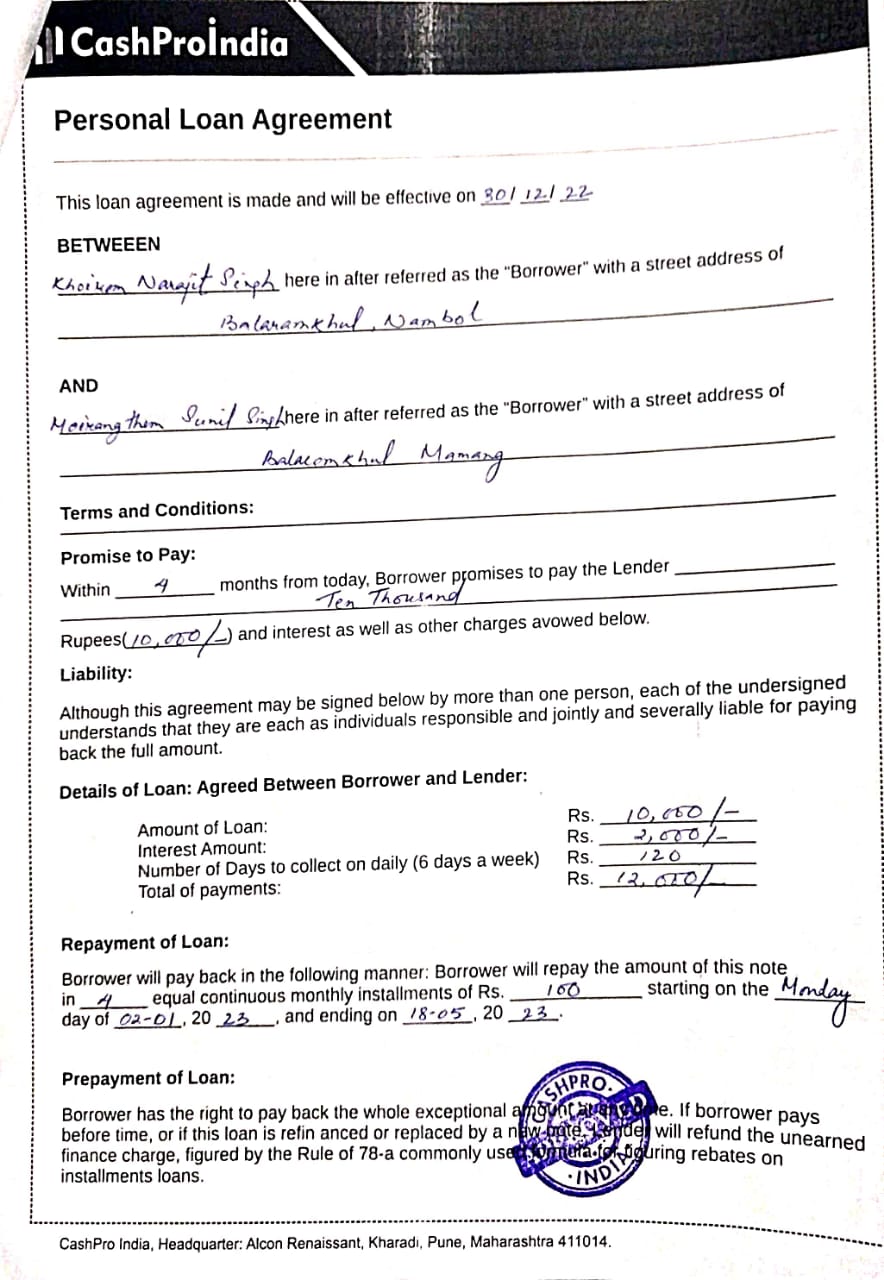 CashProİndia
Personal Loan Agreement
This loan agreement is made and will be effective on 30/ 12/ 22
BETWEEEN
Khoirom Narajit Singh here in after referred as the "Borrower" with a street address of
Balaramkhul, Nambol
AND
Moirangthem Sunil Singh here in after referred as the "Borrower" with a street address of
Balaramkhul Mamang
Terms and Conditions:
Promise to Pay:
Within 4 months from today, Borrower promises to pay the Lender
Ten Thousand
Rupees(10,000/-) and interest as well as other charges avowed below.
Liability:
Although this agreement may be signed below by more than one person, each of the undersigned
understands that they are each as individuals responsible and jointly and severally liable for paying
back the full amount.
Details of Loan: Agreed Between Borrower and Lender:
Amount of Loan: Rs. 10,000/-
Interest Amount: Rs. 2,000/-
Number of Days to collect on daily (6 days a week) Rs. 120
Total of payments: Rs. 12,000/-
Repayment of Loan:
Borrower will pay back in the following manner: Borrower will repay the amount of this note
in 4 equal continuous monthly installments of Rs. 100 starting on the Monday
day of 02-01, 20 23, and ending on 18-05, 20 23.
Prepayment of Loan:
Borrower has the right to pay back the whole exceptional amount at any time. If borrower pays
before time, or if this loan is refin anced or replaced by a new note, Lender will refund the unearned
finance charge, figured by the Rule of 78-a commonly used formula for figuring rebates on
installments loans.
CASHPRO
INDIA
CashPro India, Headquarter: Alcon Renaissant, Kharadi, Pune, Maharashtra 411014.